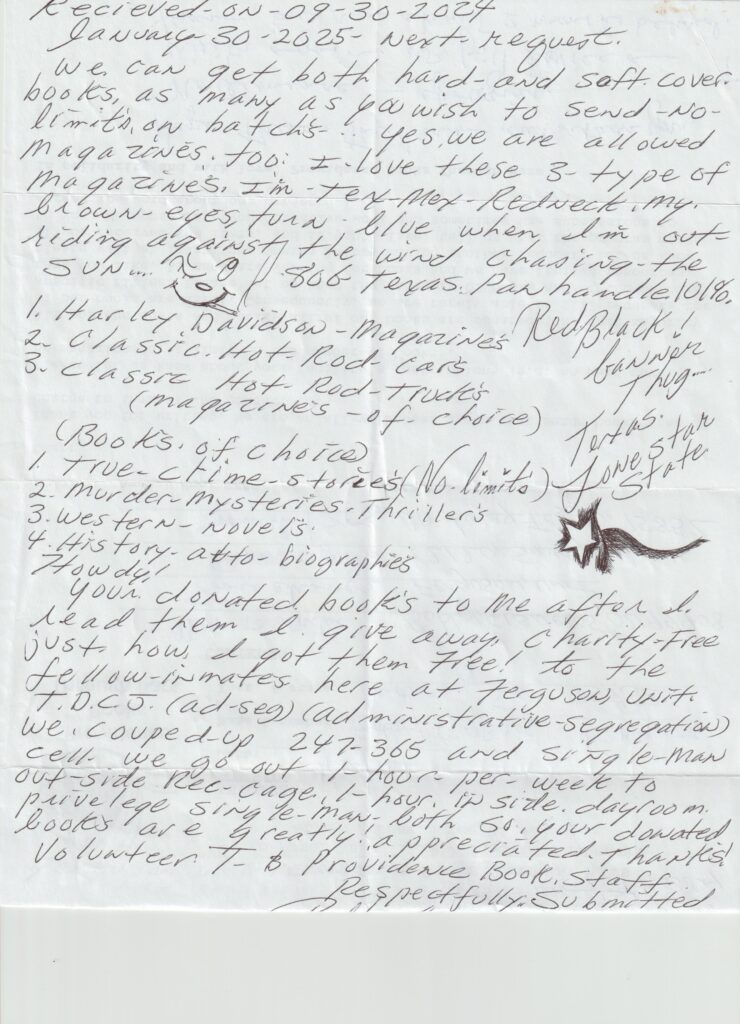 Recieved-on-09-30-2024
January 30-2025- next-request.
we can get both hard-and soft cover
books, as many as you wish to send-no-
limit's, on batch's... yes, we are allowed
magazines. too: I-love these 3-type of
magazine's. I'm-Tex-Mex-Redneck. my.
brown-eyes, turn-blue when I'm out-
riding against the wind chasing-the
SUN.... 806 Texas. Panhandle. 101%.
1. Harley Davidson-Magazine's Red Black!
2. Classic. Hot-Rod-Car's banner
3. Classic Hot-Rod-Truck's Thug....
(magazine's-of choice) Texas.
(Book's. of choice) Lone Star
1. True-crime-stories (No-limit's) State
2. Murder-mysteries-Thriller's
3. western-novel's.
4. History-auto-biographies
Howdy!
your donated book's to me after I.
read them I give away. Charity-Free
just how I got them Free! to the
fellow-inmates here at Ferguson, unit.
T.D.C.J. (ad-seg) (administrative-segregation)
we. couped-up 247-365 and single-man
cell-we go out 1-hour-per-week to
out-side Rec-cage. 1-hour. in side. dayroom.
privelege single-man-both so, your donated
books are greatly! appreciated. Thanks!
Volunteer T- B Providence Book. Staff
Respectfully. Submitted